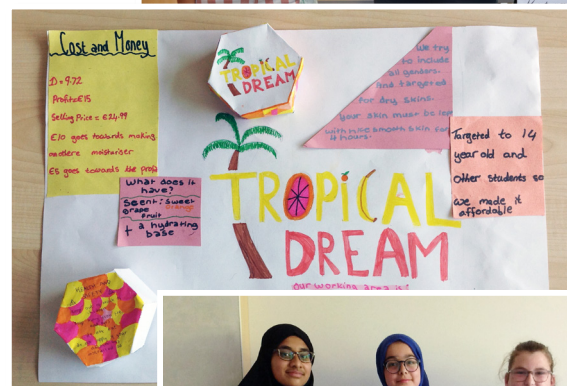 Cost and Money
D = 9.72
Profit = £15
Selling Price = £24.99
£10 goes towards making
more moisturiser
£5 goes towards the profit
TROPICAL
DREAM
We try
to include
all genders.
and targeted
for dry skins.
your skin must be left
with nice smooth skin for
4 hours.
Targeted to 14
year old and
Other students so
we made it
affordable
What does it
have?
Scent: Sweet
grape orange
fruit
+ a hydrating
base
TROPICAL
DREAM
our working area is: